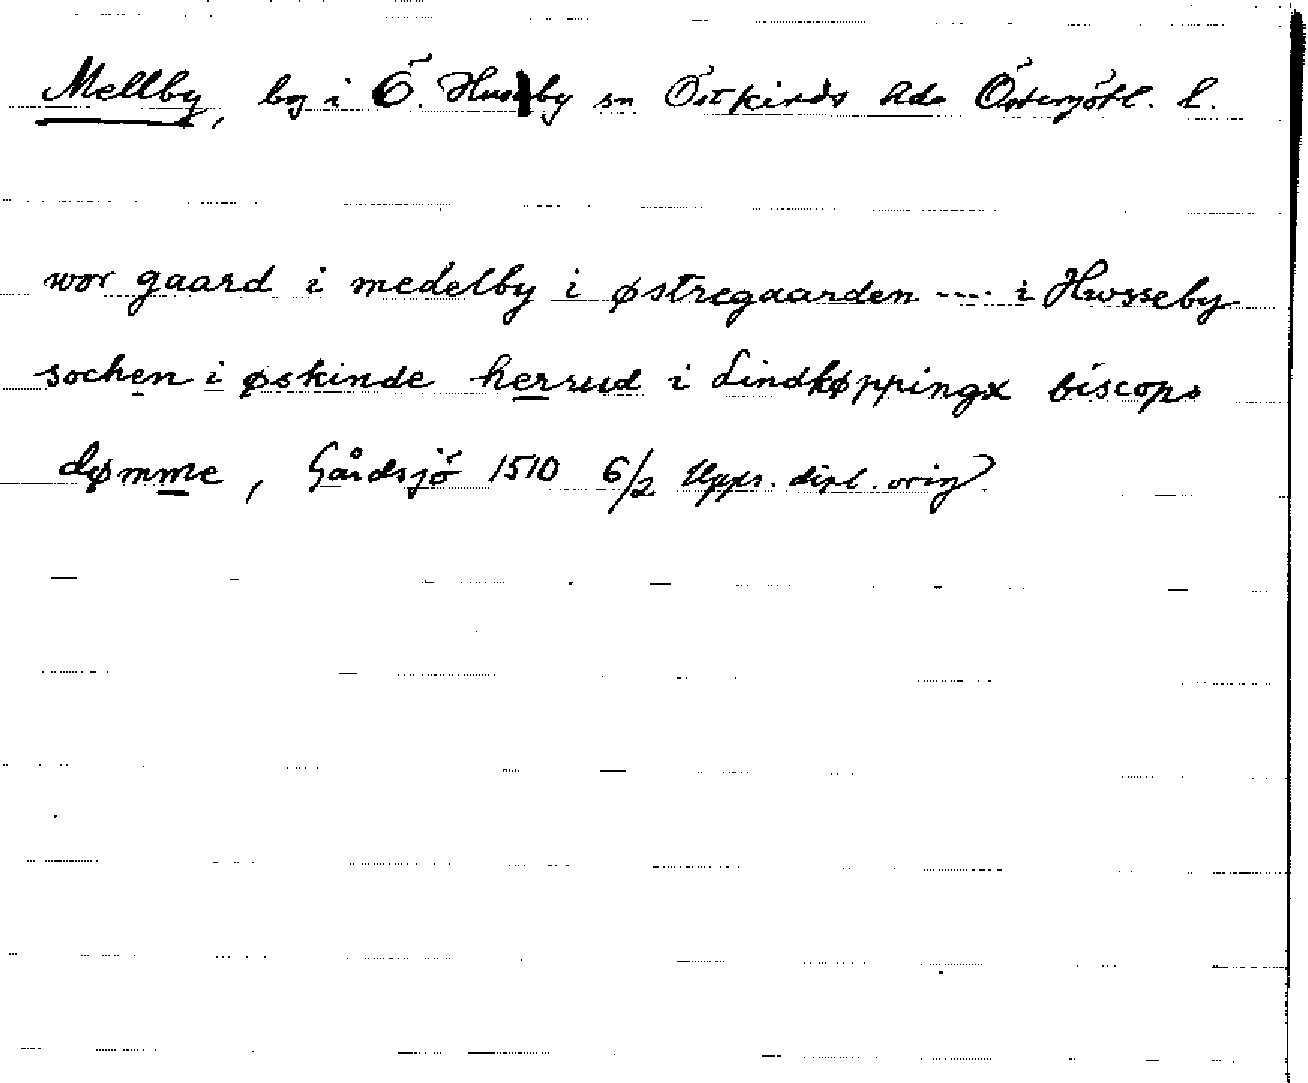 Mellby, by i Ö. Husby sn Östkinds hd Östergötl. l.
wor gaard i medelby i østregaarden ---- i Hwsseby
sochen i øskinde herrud i Lindkøppingx biscops
dømme, Gårdsjö 1510 6/2 Upps. dipl. orig